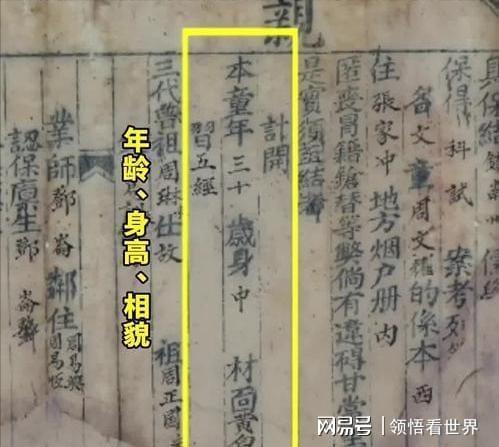 親
具保結
保得 科試 案考列
文童周文 的係本 西
住張家冲地方烟户册内
匿喪冒籍鎗替等弊倘有違碍甘當
是實須至結者
計開
本童年三十歲身中材面黃白
習五經
三代曾祖周琳仕故 祖周正國
業師鄧崙 鄰住
認保廪生鄧
年龄、身高、相貌
网易号 | 领悟看世界